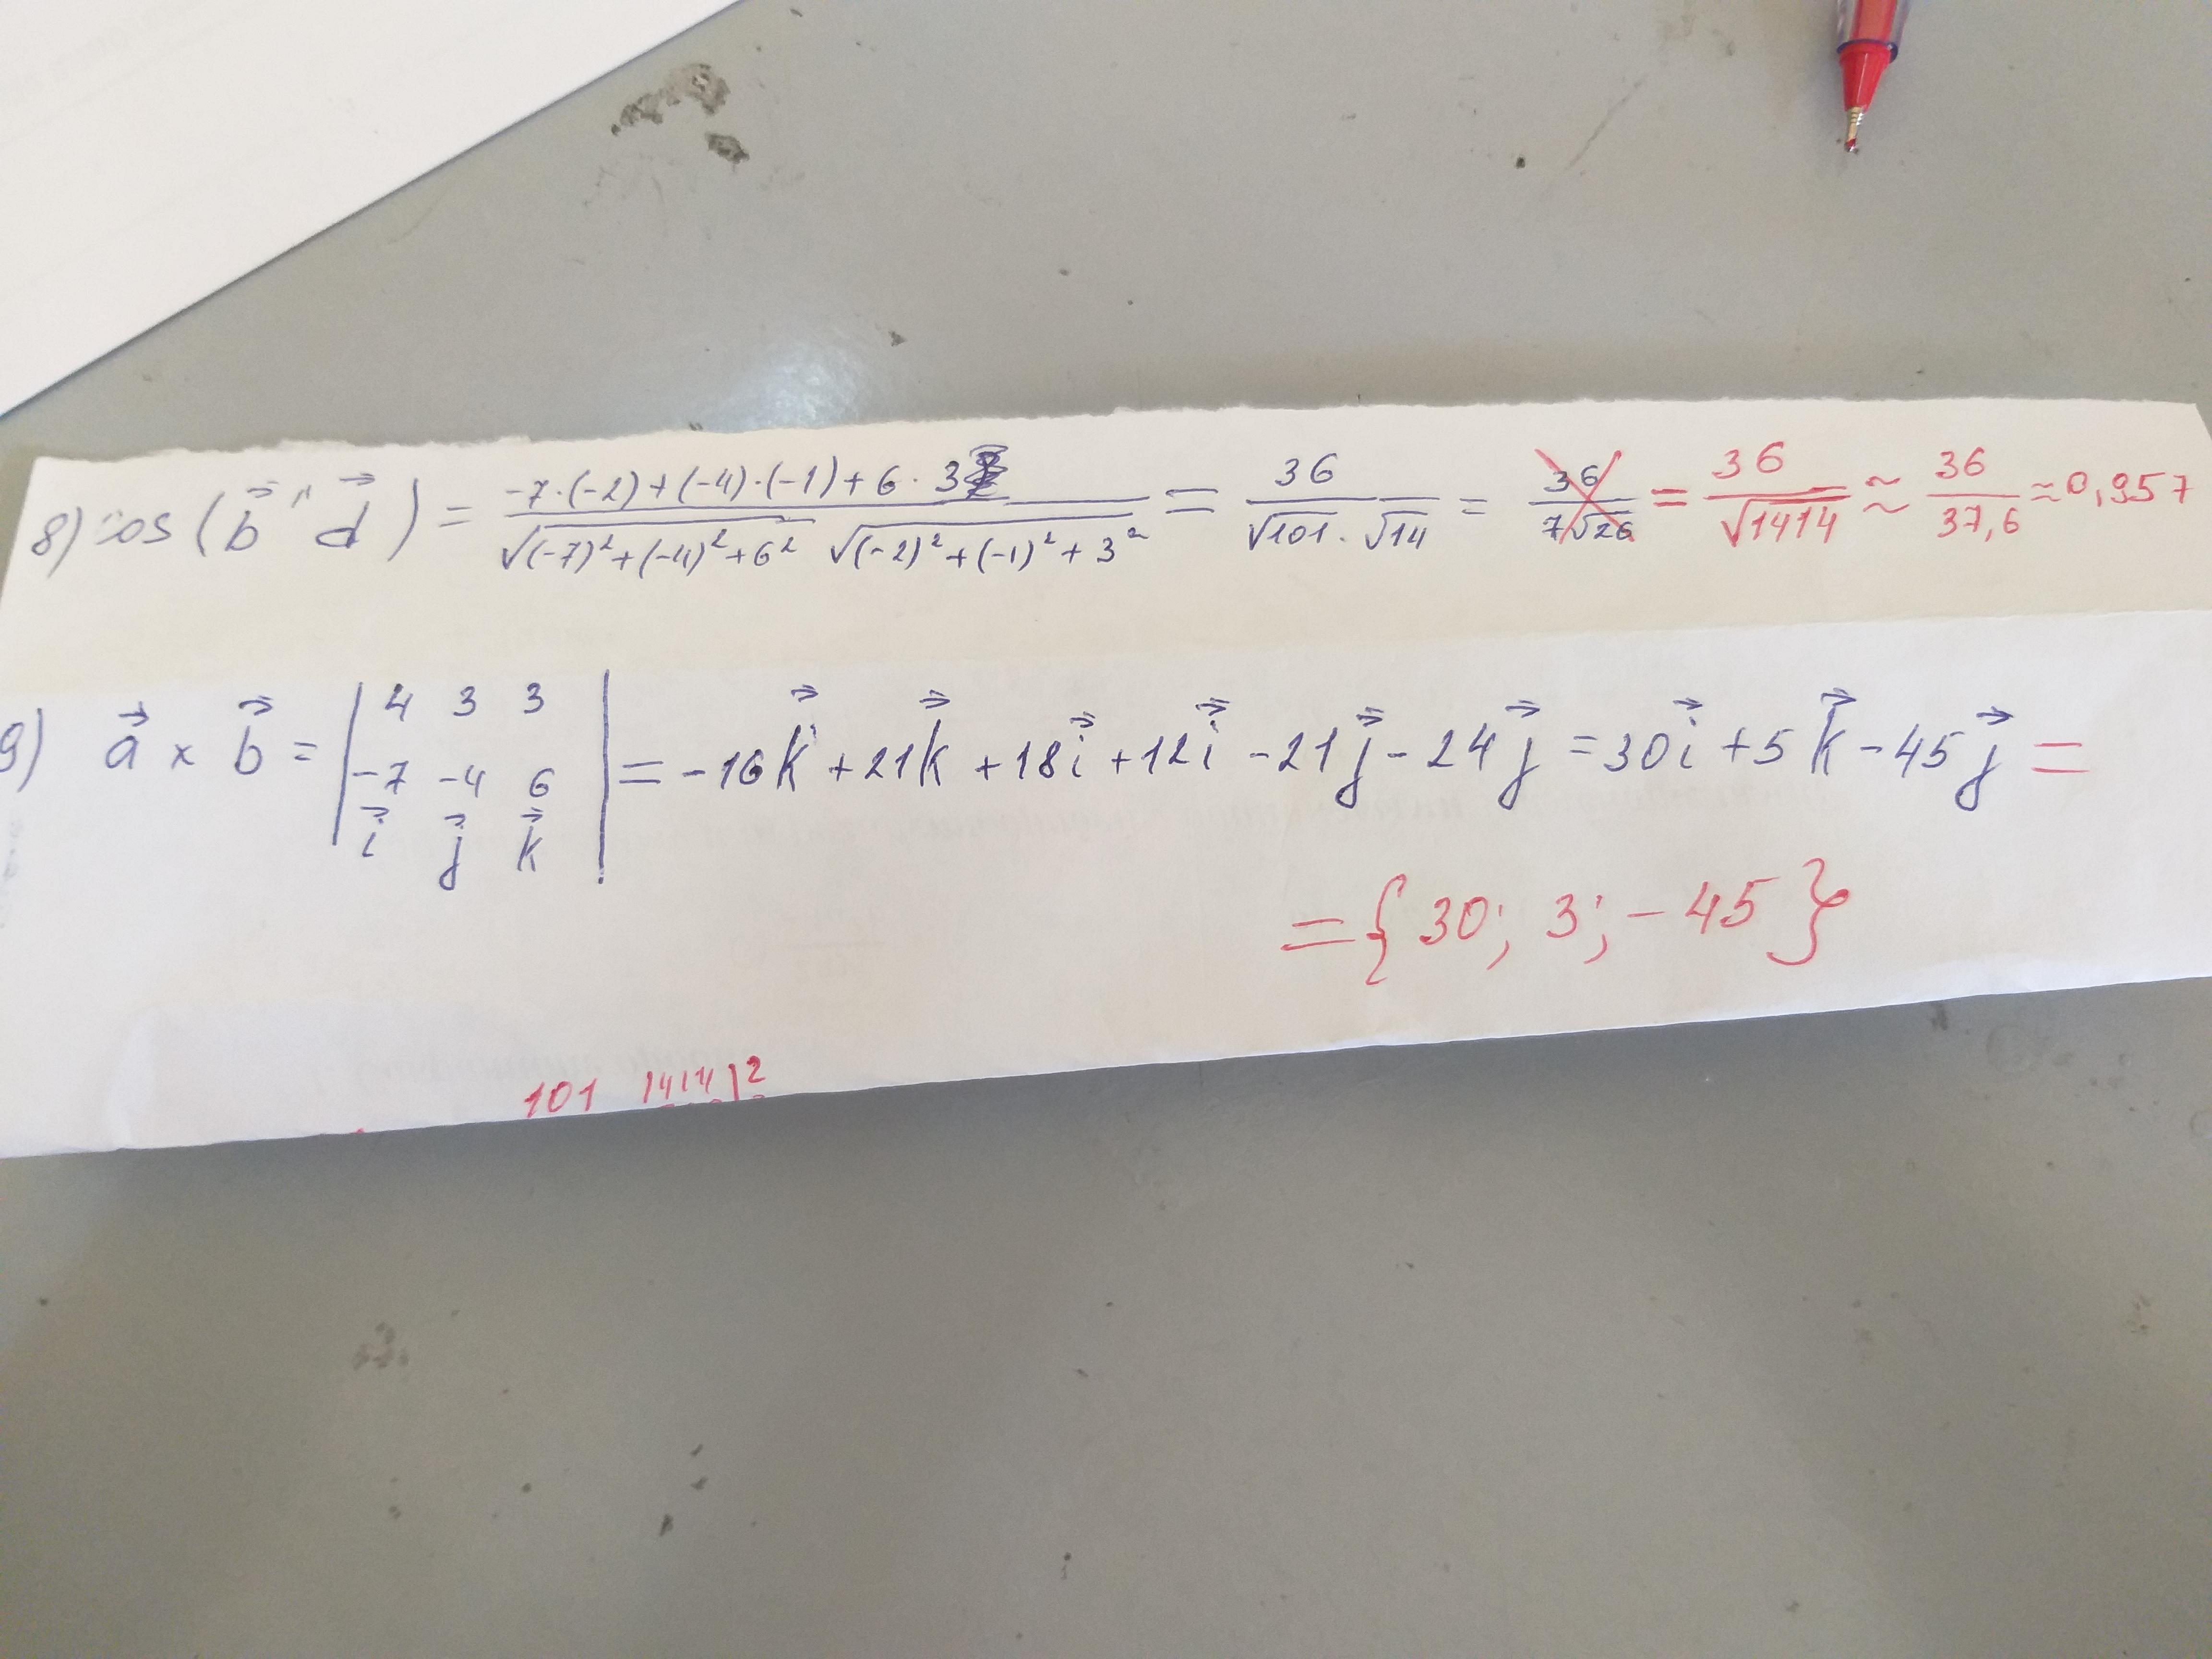 8) cos (b⃗ ^ d⃗) = -7·(-2)+(-4)·(-1)+6·3 / √(-7)²+(-4)²+6² √(-2)²+(-1)²+3² = 36 / √101 · √14 = 36 / 7√26 = 36 / √1414 ≈ 36 / 37,6 ≈ 0,957
9) a⃗ × b⃗ = | 4 3 3
-7 -4 6
i⃗ j⃗ k⃗ | = -16k⃗ + 21k⃗ + 18i⃗ + 12i⃗ - 21j⃗ - 24j⃗ = 30i⃗ + 5k⃗ - 45j⃗ =
= { 30; 3; - 45 }
101 1414 | 2